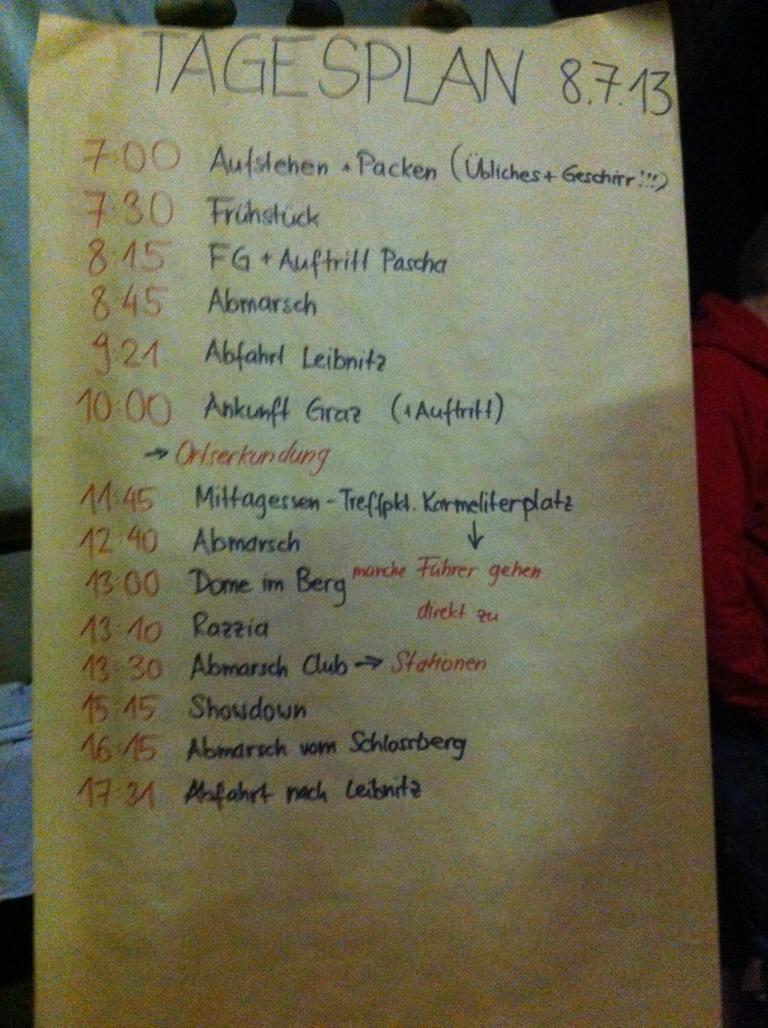 TAGESPLAN 8.7.13
7:00 Aufstehen + Packen (Übliches + Geschirr!!!)
7:30 Frühstück
8:15 FG + Auftritt Pascha
8:45 Abmarsch
9:21 Abfahrt Leibnitz
10:00 Ankunft Graz (+Auftritt)
→ Ortserkundung
11:45 Mittagessen - Treffpkt. Karmeliterplatz
↓
12:40 Abmarsch
manche Führer gehen
13:00 Dome im Berg
direkt zu
13:10 Razzia
13:30 Abmarsch Club → Stationen
15:15 Showdown
16:15 Abmarsch vom Schlossberg
17:31 Abfahrt nach Leibnitz